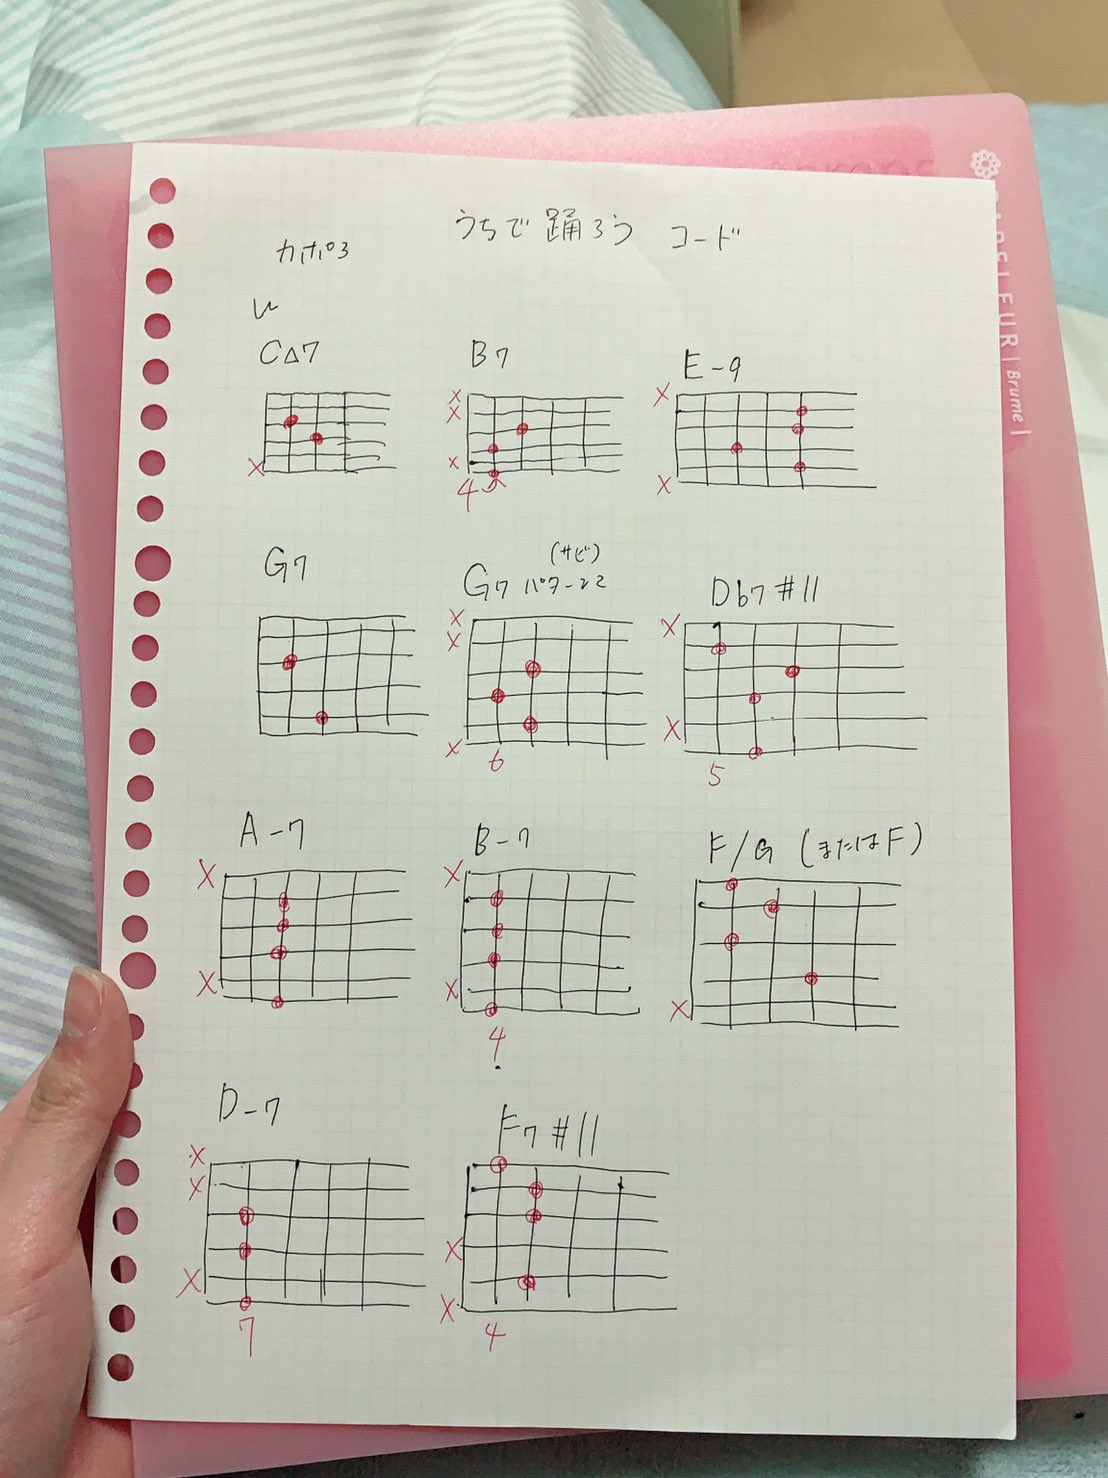 うちで踊ろう コード
カポ3
C△7 B7 E-9
x
x
x
x
x
x
4
G7 G7 パターン2 (サビ) Db7 #11
x
x
x
x
x
6 5
A-7 B-7 F/G (またはF)
x
x
x
x
x
4
D-7 F7 #11
x
x
x
x
x
7 4
Brume